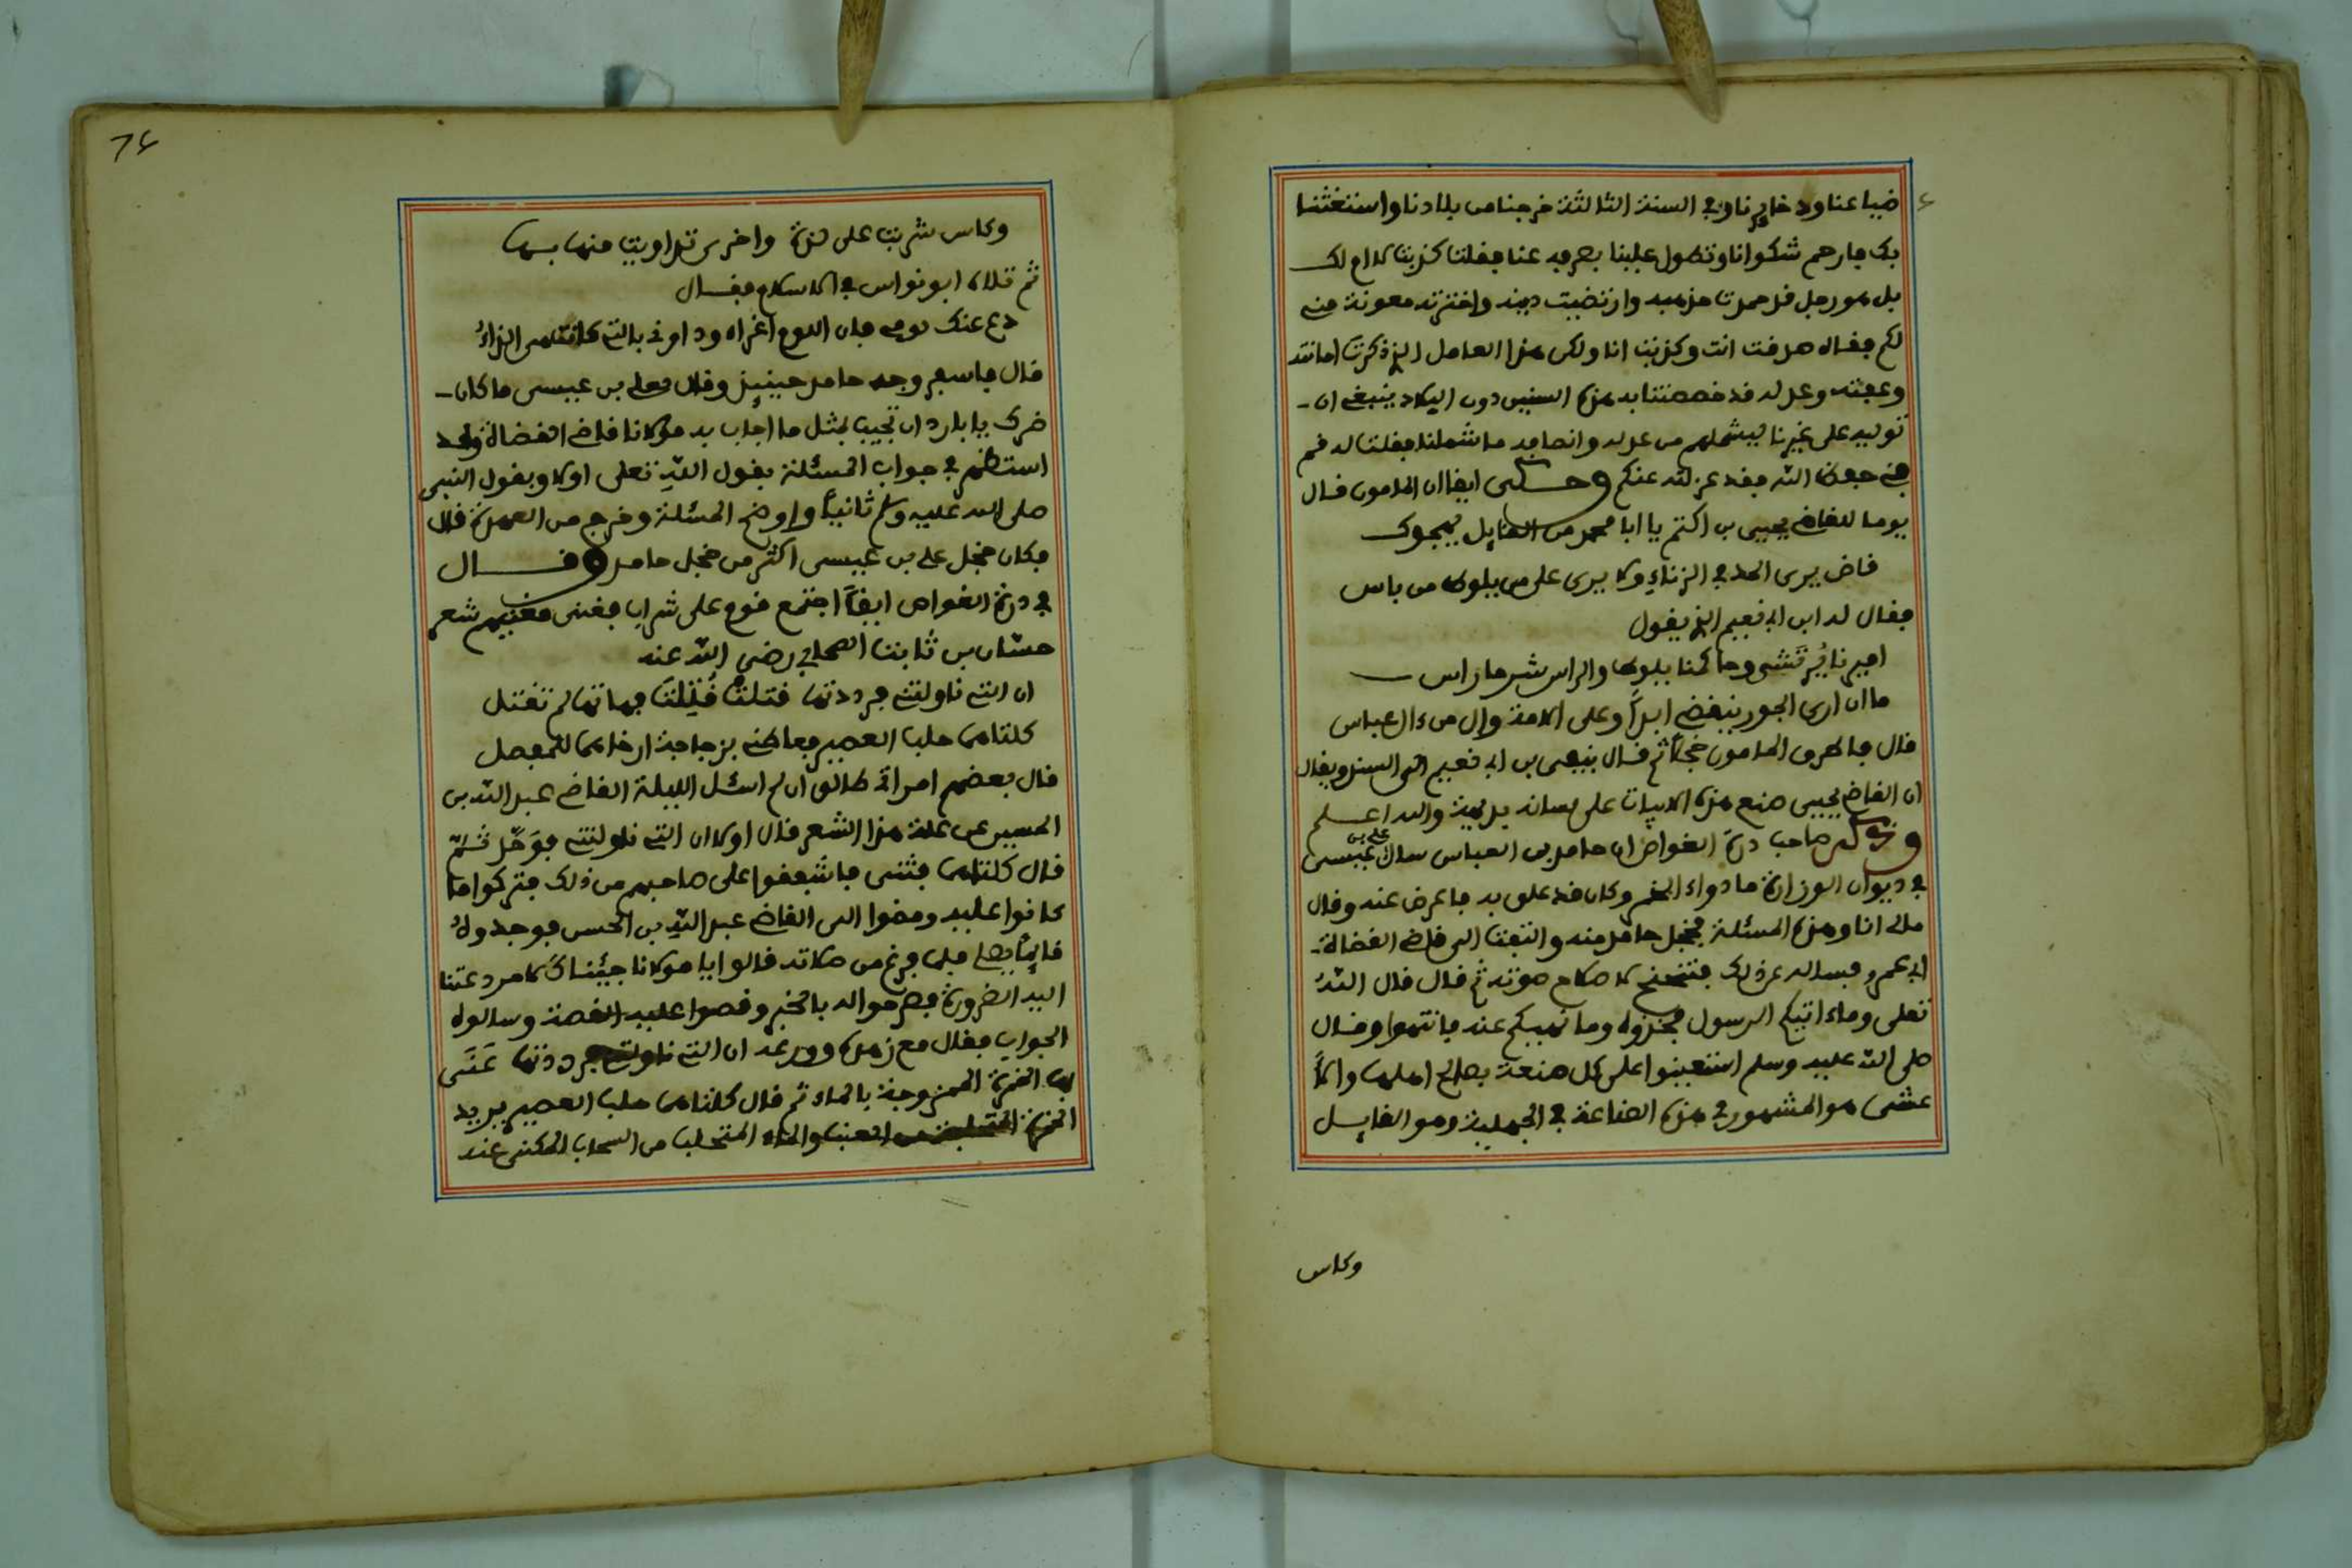 ضياعنا وذخايرنا وفي السنة الثالثة خرجنا من بلادنا واستغثنا
بك فارحم شكوانا وتطول علينا بصرفه عنا فقلت كذبت لا ام لك
بل هو رجل قد حمدت مذهبه وارتضيت دينه واخترته معونة منه
لكم فقال صدقت انت وكذبت انا ولكن هذا العامل الذي ذكرت امانته
وعفته وعدله قد خصصتنا به هذه السنين دون البلاد ينبغي ان
توليه على غيرنا ليشملهم من عدله وانصافه ما شملنا فقلت له قم
في حفظ الله فقد عزلته عنكم وحكى ايضا ان المامون قال
يوما للقاضي يحيى بن اكثم يا ابا محمد من القايل يهجوك
قاض يرى الحد في الزناء ولا يرى على من يلوط من باس
فقال له ابن ابي نعيم الذي يقول
اميرنا يرتشي وحاكمنا يلوط والراس شر ما راس
ما ان ارى الجور ينقضي ابدا وعلى الامة وال من ءال عباس
قال فاطرق المامون خجلا ثم قال ينفى بن ابي نعيم الى السند ويقال
ان القاضي يحيى صنع هذه الابيات على لسانه بديهة والله اعلم
وذكر صاحب درة الغواص ان حامد بن العباس سال علي بن عيسى
في ديوان الوزارة ما دواء الخمر وكان قد علق به فاعرض عنه وقال
ما لي انا وهذه المسئلة فخجل حامد منه والتفت الى قاضي القضاة
ابي عمرو فساله عن ذلك فتنحنح لاصلاح صوته ثم قال قال الله
تعلى وما ءاتيكم الرسول فخذوه وما نهيكم عنه فانتهوا وقال
صلى الله عليه وسلم استعينوا على كل صنعة بصالح اهلها والا
عشى هو المشهور في هذه الصناعة في الجهلية وهو القايل
وكاس
76
وكاس شربت على لذة واخرى تداويت منها بها
ثم تلاه ابو نواس في الاسلام فقال
دع عنك لومي فان اللوم اغراء وداوني بالتي كانت هي الداء
قال فاسفر وجه حامد حينيذ وقال لعلي بن عيسى ما كان
ضرك يا بارد ان تجيب بمثل ما اجاب به مولانا قاضي القضاة وقد
استظهر في جواب المسئلة بقول الله تعلى اولا وبقول النبي
صلى الله عليه وسلم ثانيا واوضح المسئلة وخرج من العهدة قال
فكان خجل علي بن عيسى اكثر من خجل حامد وقال
في درة الغواص ايضا اجتمع قوم على شراب فغنى مغنيهم شعر
حسان بن ثابت الصحابي رضي الله عنه
ان التي ناولتني فرددتها قتلت قتلت فهاتها لم تقتل
كلتاهما حلب العصير فعاطني بزجاجة ارخاهما للمفصل
قال بعضهم امراتي طالق ان لم اسئل الليلة القاضي عبد الله بن
الحسين عن علة هذا الشعر قال اولا ان التي ناولتني فوحد ثم
قال كلتاهما فثنى فاشفقوا على صاحبهم من ذلك فتركوا ما
كانوا عليه ومضوا الى القاضي عبد الله بن الحسن فوجدوه
قايما يصلي فلما فرغ من صلاته قالوا يا مولانا جيئناك لامر دعتنا
اليه الضرورة فصرحوا له بالخبر وقصوا عليه القصة وسالوه
الجواب فقال مع زهده وورعه ان التي ناولتني فرددتها عنى
بها الخمرة الممزوجة بالماء ثم قال كلتاهما حلب العصير يريد
الخمرة المتحلبة من العنب والماء المتحلب من السحاب المكنى عنه